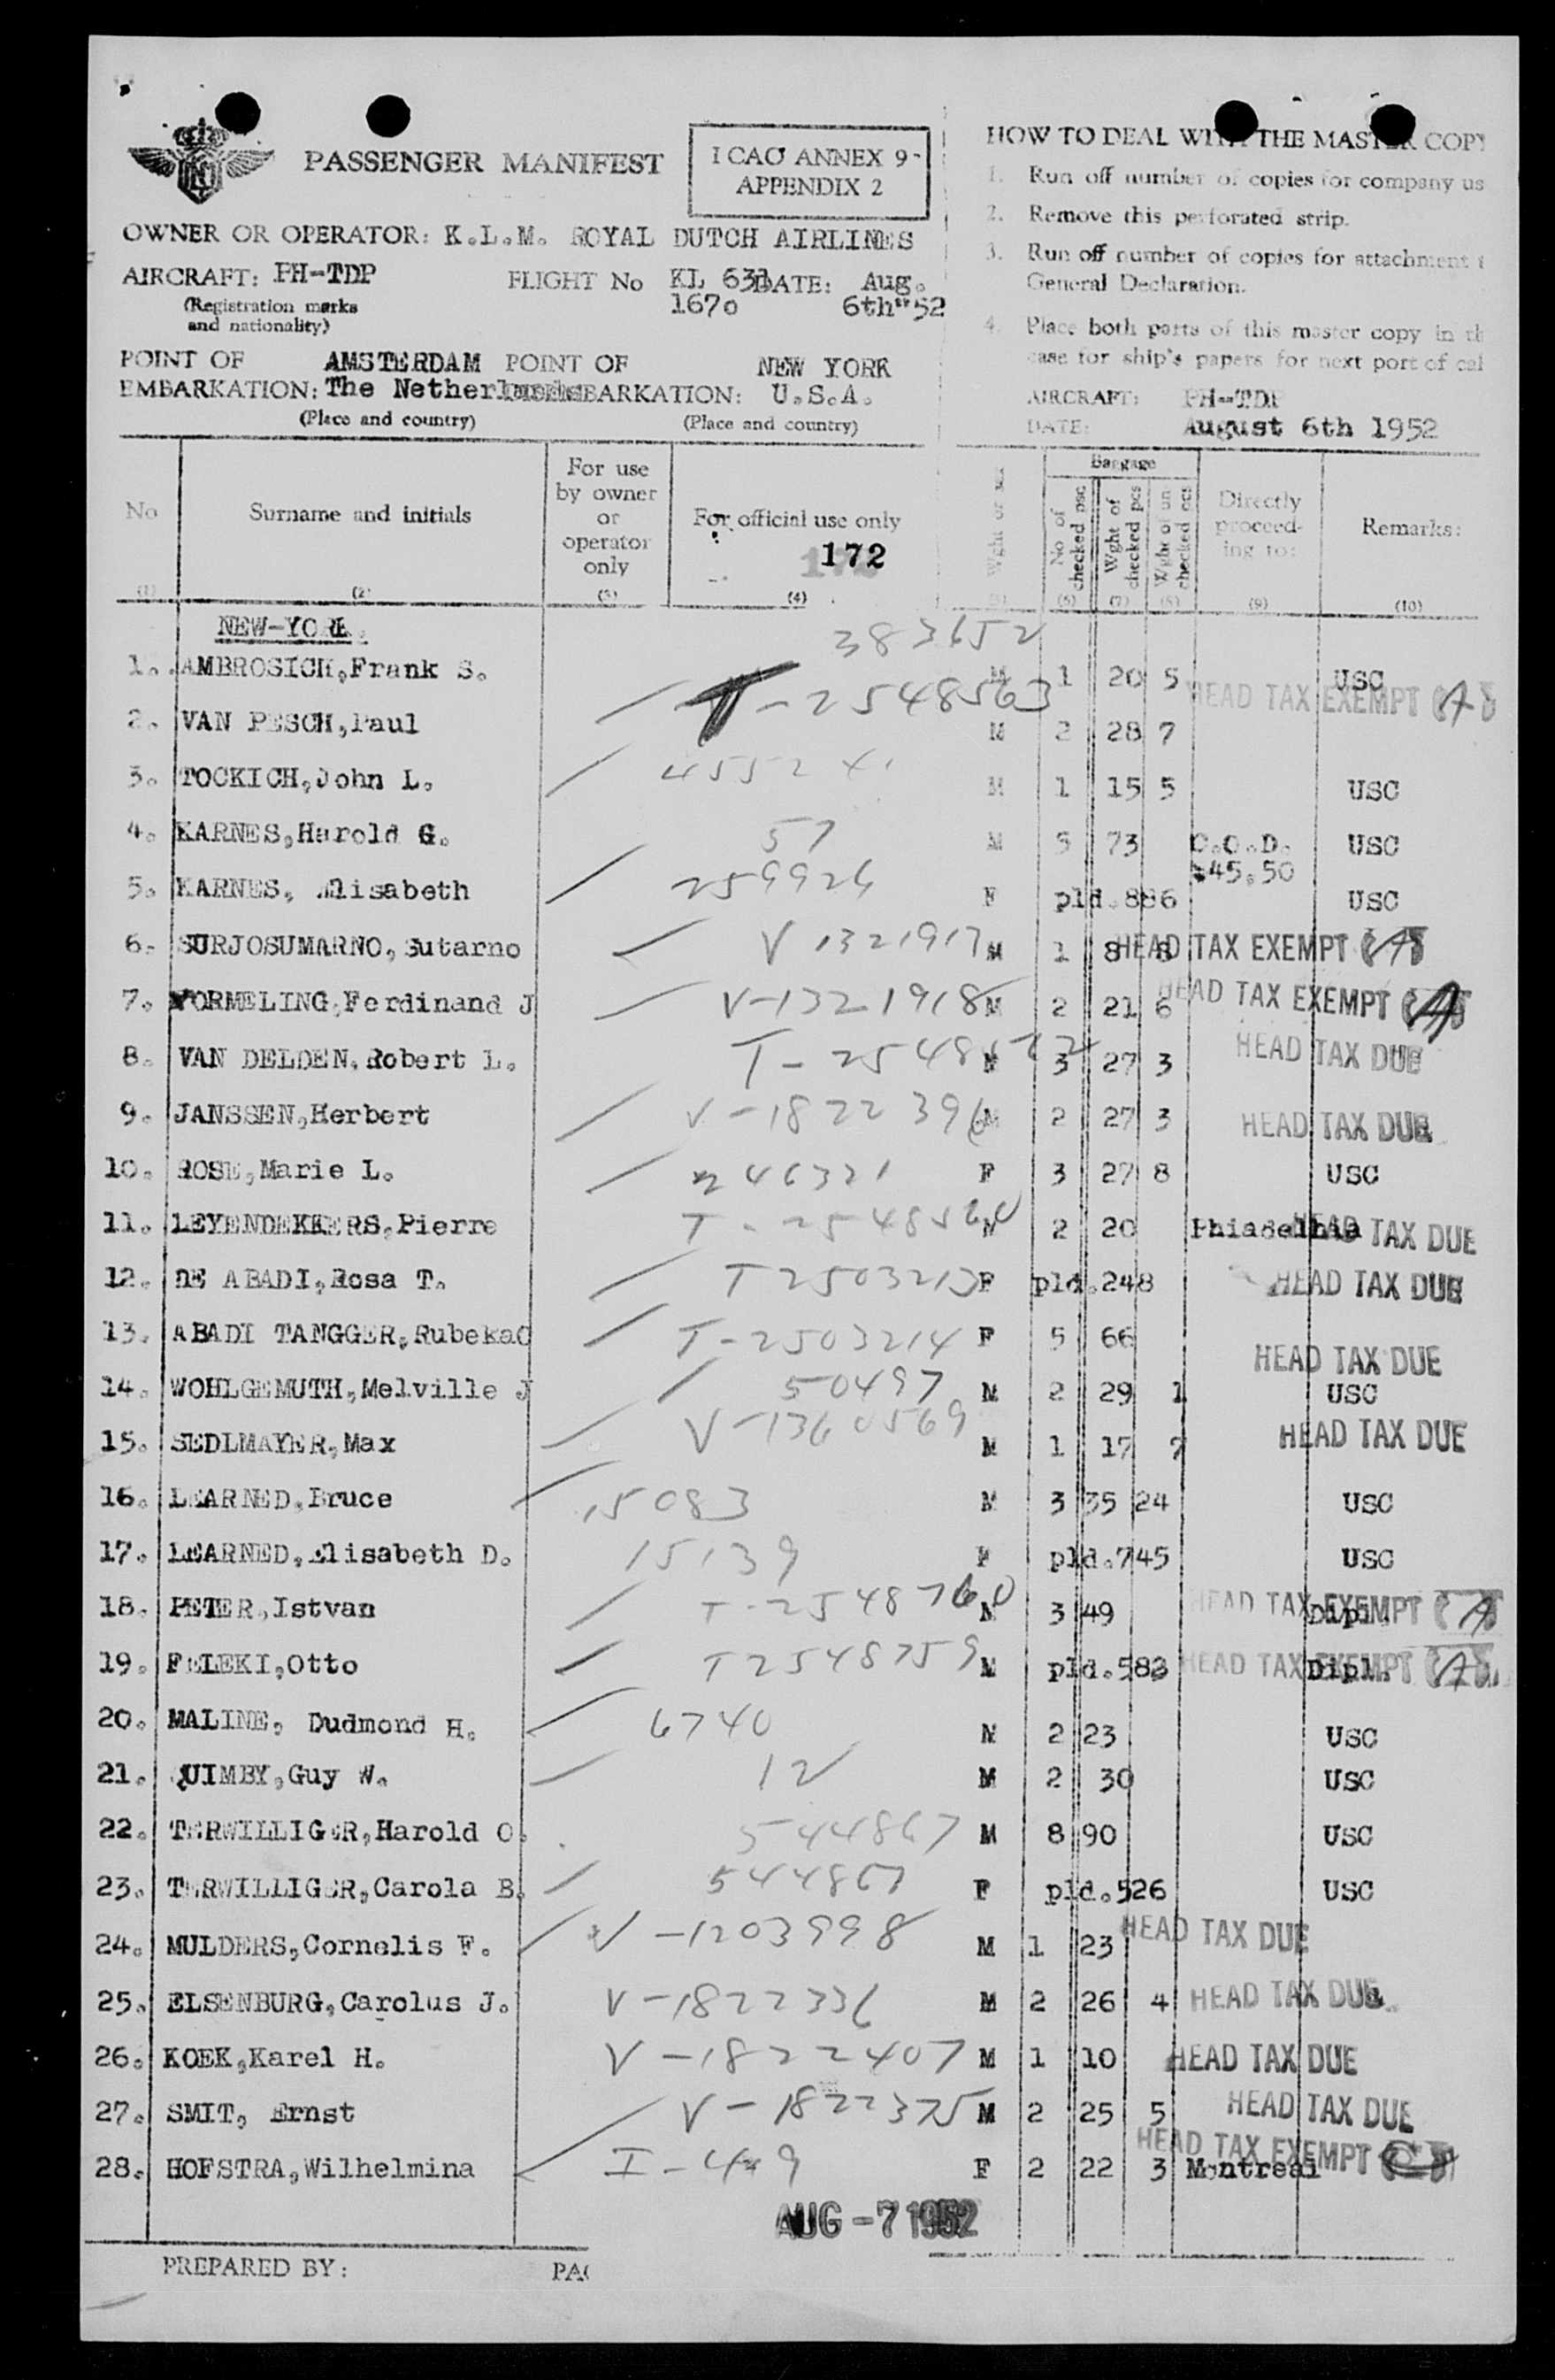 PASSENGER MANIFEST
I CAO ANNEX 9-
APPENDIX 2
OWNER OR OPERATOR: K.L.M. ROYAL DUTCH AIRLINES
AIRCRAFT: PH-TDP FLIGHT No KL 631 DATE: Aug.
(Registration marks 1670 6th"52
and nationality)
POINT OF AMSTERDAM POINT OF NEW YORK
EMBARKATION: The Netherlands EMBARKATION: U.S.A.
(Place and country) (Place and country)
HOW TO DEAL WITH THE MASTER COPY
1. Run off number of copies for company us
2. Remove this perforated strip.
3. Run off number of copies for attachment t
General Declaration.
4. Place both parts of this master copy in th
case for ship's papers for next port of cal
AIRCRAFT: PH-TDP
DATE: August 6th 1952
No Surname and initials For use by owner or operator only For official use only Wght of Baggage No of checked psc Wght of checked pcs Wght of un checked pcs Directly proceed-ing to: Remarks:
172
(1) (2) (3) (4) (5) (6) (7) (8) (9) (10)
NEW-YORK.
383652
1. AMBROSICH, Frank S. M 1 20 5 USC
2. VAN PESCH, Paul T-2548563 M 2 28 7 HEAD TAX EXEMPT
3. TOCKICH, John L. M 1 15 5 USC
4. KARNES, Harold G. 57 M 5 73 C.O.D. USC
$45.50
5. KARNES, Elisabeth 259926 F pld.886 USC
6. SURJOSUMARNO, Sutarno V 1321917 M 1 8 HEAD TAX EXEMPT
7. VORMELING, Ferdinand J V-1321918 M 2 21 6 HEAD TAX EXEMPT
8. VAN DELDEN, Robert L. M 3 27 3 HEAD TAX DUE
9. JANSSEN, Herbert V-1822396 M 2 27 3 HEAD TAX DUE
10. ROSE, Marie L. 246321 F 3 27 8 USC
11. LEYENDEKKERS, Pierre T-2548560 M 2 20 Phiadelhia HEAD TAX DUE
12. DE ABADI, Rosa T. T2503213 F pld.248 HEAD TAX DUE
13. ABADI TANGGER, RubekaC T-2503214 F 5 66 HEAD TAX DUE
14. WOHLGEMUTH, Melville J 50497 M 2 29 1 USC
15. SEDLMAYER, Max V-1360569 M 1 17 7 HEAD TAX DUE
16. LEARNED, Bruce 15083 M 3 35 24 USC
17. LEARNED, Elisabeth D. 15139 F pld.745 USC
18. PETER, Istvan T-2548760 M 3 49 HEAD TAX EXEMPT Dipl.
19. FELEKI, Otto T2548759 M pld.583 HEAD TAX EXEMPT Dipl.
20. MALINE, Dudmond H. 6740 M 2 23 USC
21. QUIMBY, Guy W. 12 M 2 30 USC
22. TERWILLIGER, Harold O. 544867 M 8 90 USC
23. TERWILLIGER, Carola B. 544867 F pld.526 USC
24. MULDERS, Cornelis F. V-1203998 M 1 23 HEAD TAX DUE
25. ELSENBURG, Carolus J. V-1822336 M 2 26 4 HEAD TAX DUE
26. KOEK, Karel H. V-1822407 M 1 10 HEAD TAX DUE
27. SMIT, Ernst V-1822375 M 2 25 5 HEAD TAX DUE
28. HOFSTRA, Wilhelmina F 2 22 3 Montreal HEAD TAX EXEMPT
AUG-7 1952
PREPARED BY: PAG